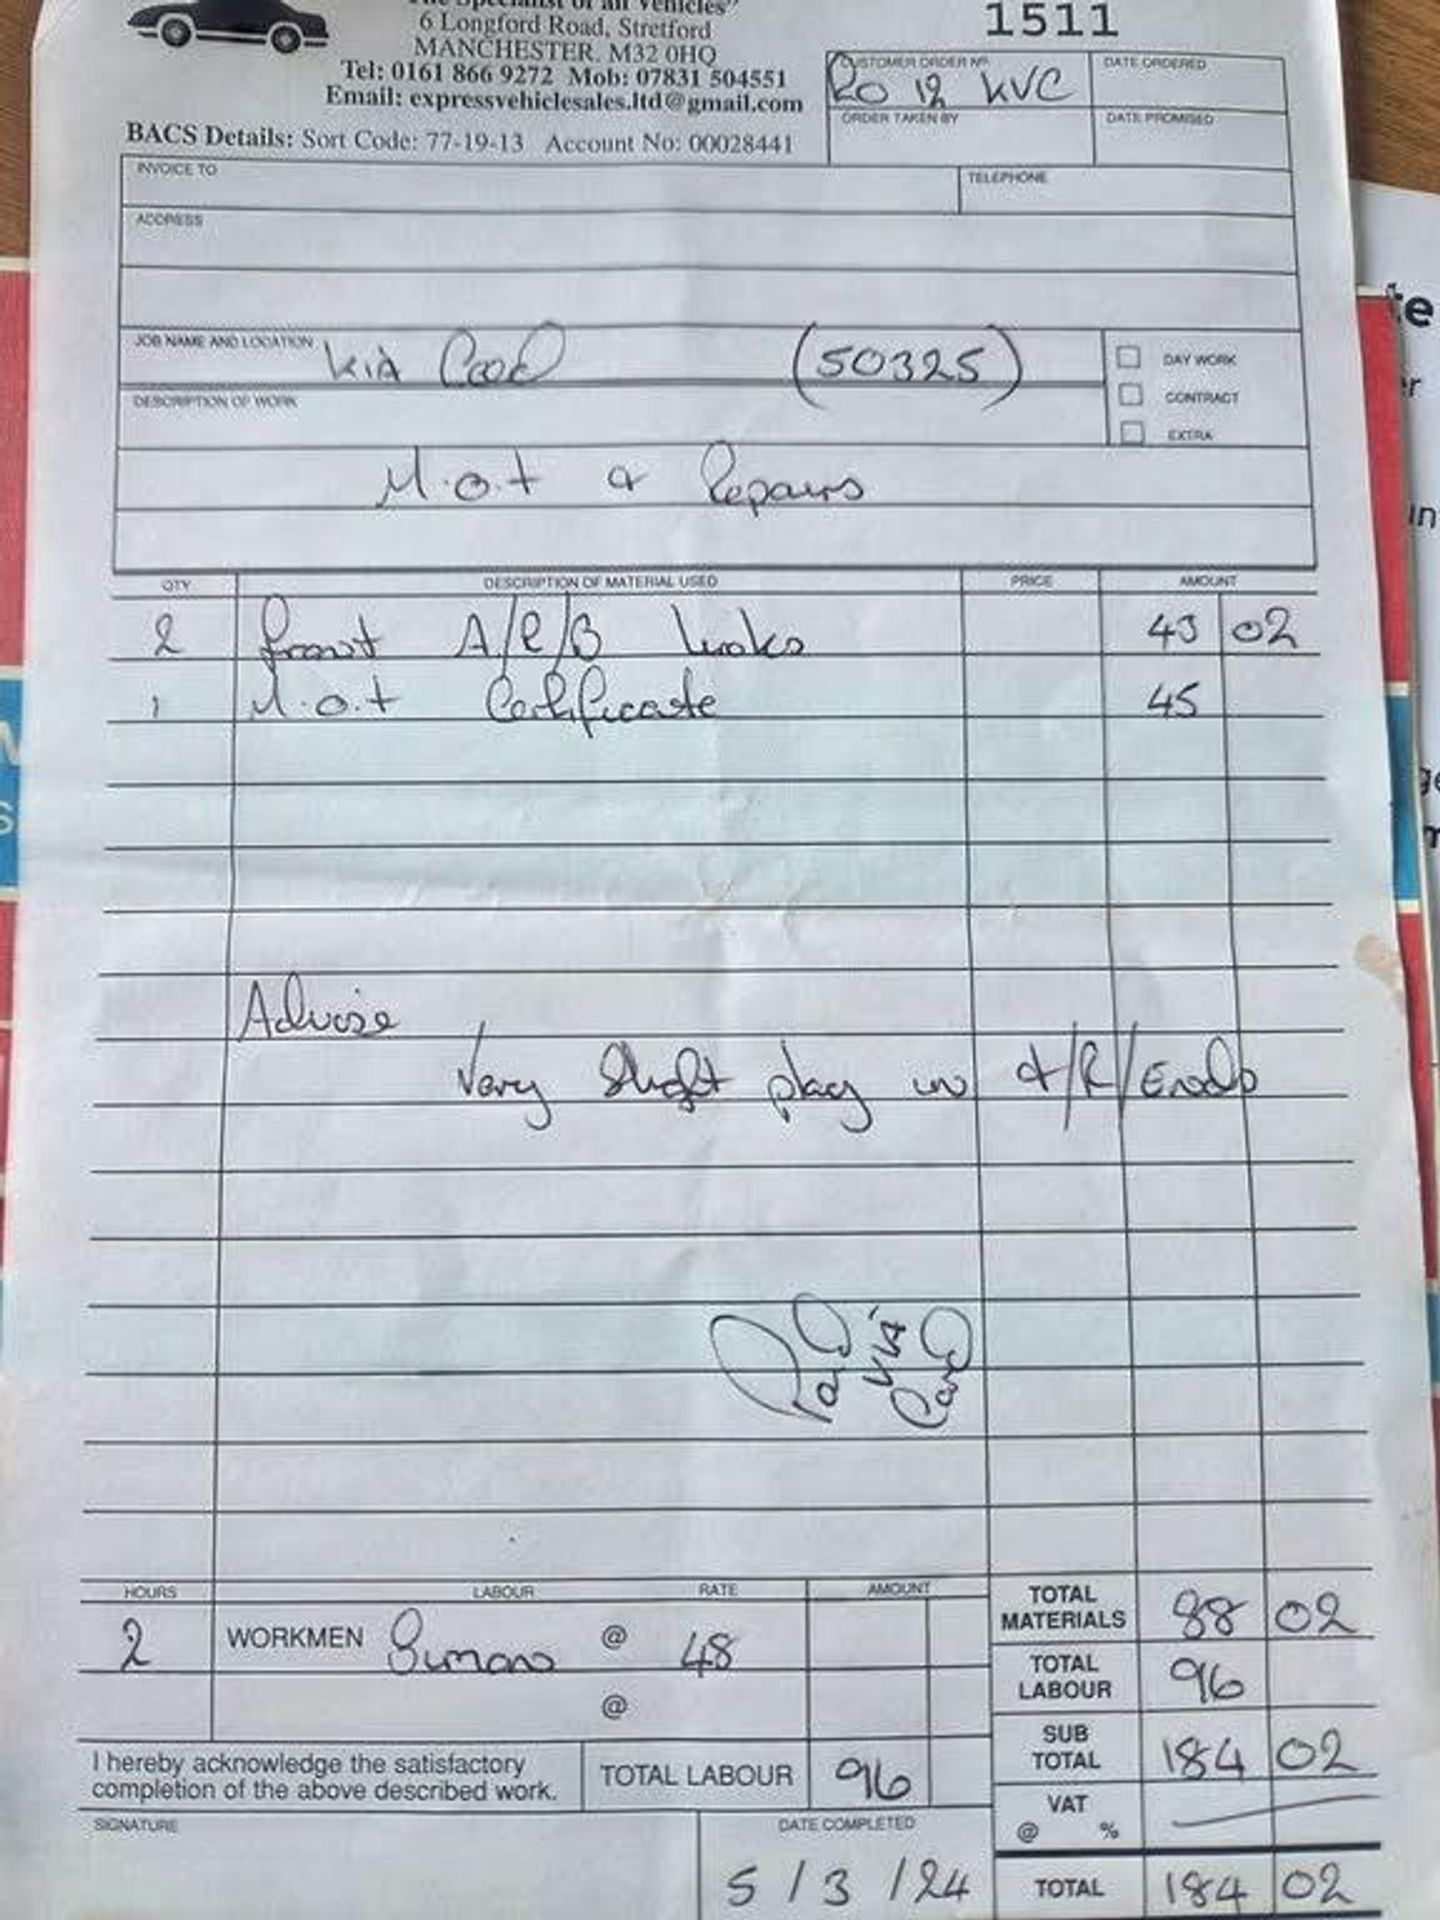 The Specialist of all Vehicles"
6 Longford Road, Stretford
MANCHESTER. M32 0HQ
Tel: 0161 866 9272 Mob: 07831 504551
Email: expressvehiclesales.ltd@gmail.com
BACS Details: Sort Code: 77-19-13 Account No: 00028441
1511
CUSTOMER ORDER Nº. DATE ORDERED
RO 12 KVC
ORDER TAKEN BY DATE PROMISED
INVOICE TO TELEPHONE
ADDRESS
JOB NAME AND LOCATION Kia (50325)
DAY WORK
CONTRACT
EXTRA
DESCRIPTION OF WORK
M.O.t & Repairs
QTY DESCRIPTION OF MATERIAL USED PRICE AMOUNT
2 front A/R/B links 43 02
1 M.O.t Certificate 45
Advise
Very Slight play in t/R/Ends
Paid
via
Card
HOURS LABOUR RATE AMOUNT
2 WORKMEN @ 48
@
I hereby acknowledge the satisfactory
completion of the above described work.
TOTAL LABOUR 96
SIGNATURE
DATE COMPLETED
5/3/24
TOTAL MATERIALS 88 02
TOTAL LABOUR 96
SUB TOTAL 184 02
VAT @ %
TOTAL 184 02